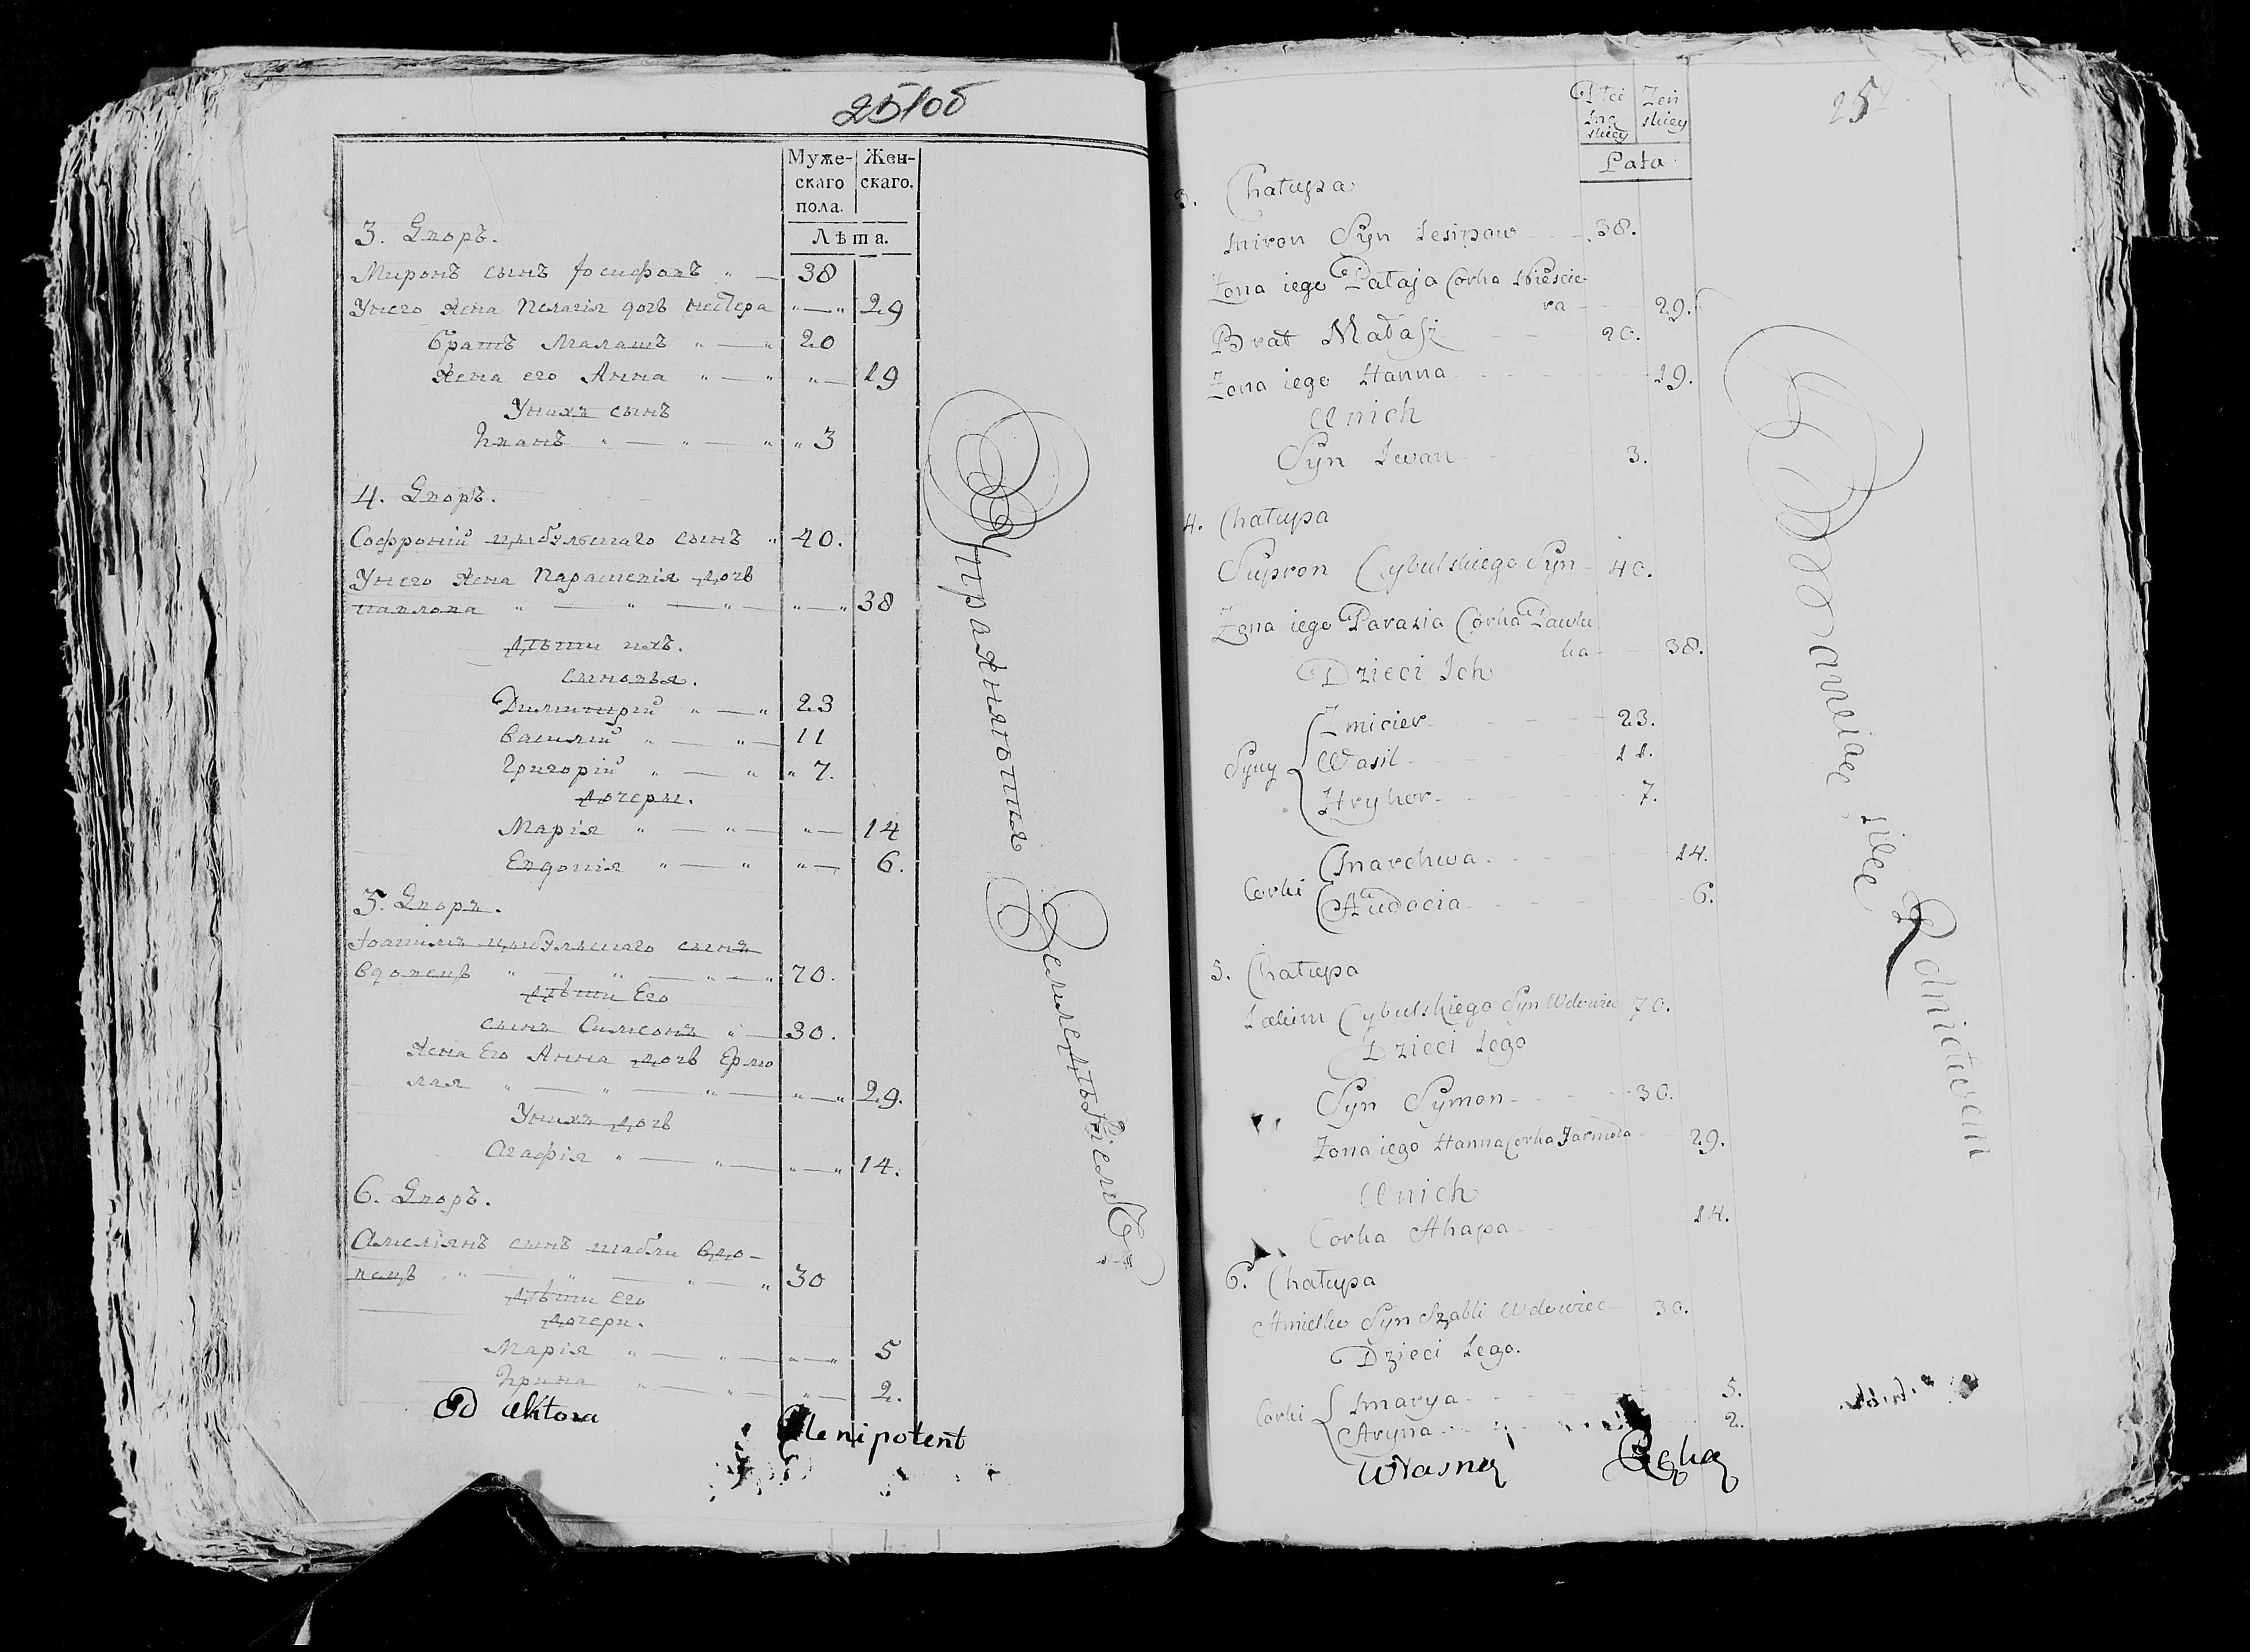 251об
Муже- Жен-
скаго скаго.
пола.
Лѣта.
3. Дворъ.
Миронъ сынъ Іосифовъ " — 38
Унего жена Пелагія дочь нестера " — " 29
братъ Малашъ " — " 20
жена его Анна " — " " — 19
Унихъ сынъ
Иванъ " — " — " " 3
4. Дворъ.
Софроній цыбульскаго сынъ " 40.
Унего жена Параскевія дочь
павлова " — " — " — " — " 38
дѣти ихъ.
сыновья.
Димитрій " — " 23
василій " — " — 11
Григорій " — " " 7.
дочери.
Марія " — " — " — 14
Евдокія " — " " — 6.
5. Дворъ.
Іоакимъ цыбульскаго сынъ
вдовецъ " — " — " — " 70.
дѣти Его
сынъ Симеонъ " — 30.
жена Его Анна дочь Ермо
лая " — " — " — " — " 29.
Унихъ дочь
Агафія " — " — " — " 14.
6. Дворъ.
Амеліянъ сынъ шабли вдо-
вецъ " — " — " — " 30
дѣти его
дочери.
Марія " — " — " — " 5
Ирина " — " — " — 2.
Упражняются Земледѣліемъ
Od Aktora Plenipotent
252
Płci Żeń
mę skiey
skiey
Lata
3. Chałupa
Miron Syn Iesipow 38.
Żona iego Pałaja Corka Niescie
ra 29.
Brat Małasz 20.
Żona iego Hanna 19.
U nich
Syn Iwan 3.
4. Chałupa
Supron Cybulskiego Syn 40.
Żona iego Parasia Corka Pawlu
ka 38.
Dzieci Ich
Syny Zmicier 23.
Wasil 11.
Hryhor 7.
Corki Marchwa 14.
Audocia 6.
5. Chałupa
Iakim Cybulskiego Syn Wdowiec 70.
Dzieci Iego
Syn Symon 30.
Żona iego Hanna Corka Jarmoła 29.
U nich
Corka Ahapa 14.
6. Chałupa
Amielko Syn Szabli Wdowiec 30.
Dzieci Iego.
Corki Marya 5.
Aryna 2.
Własną Ręką